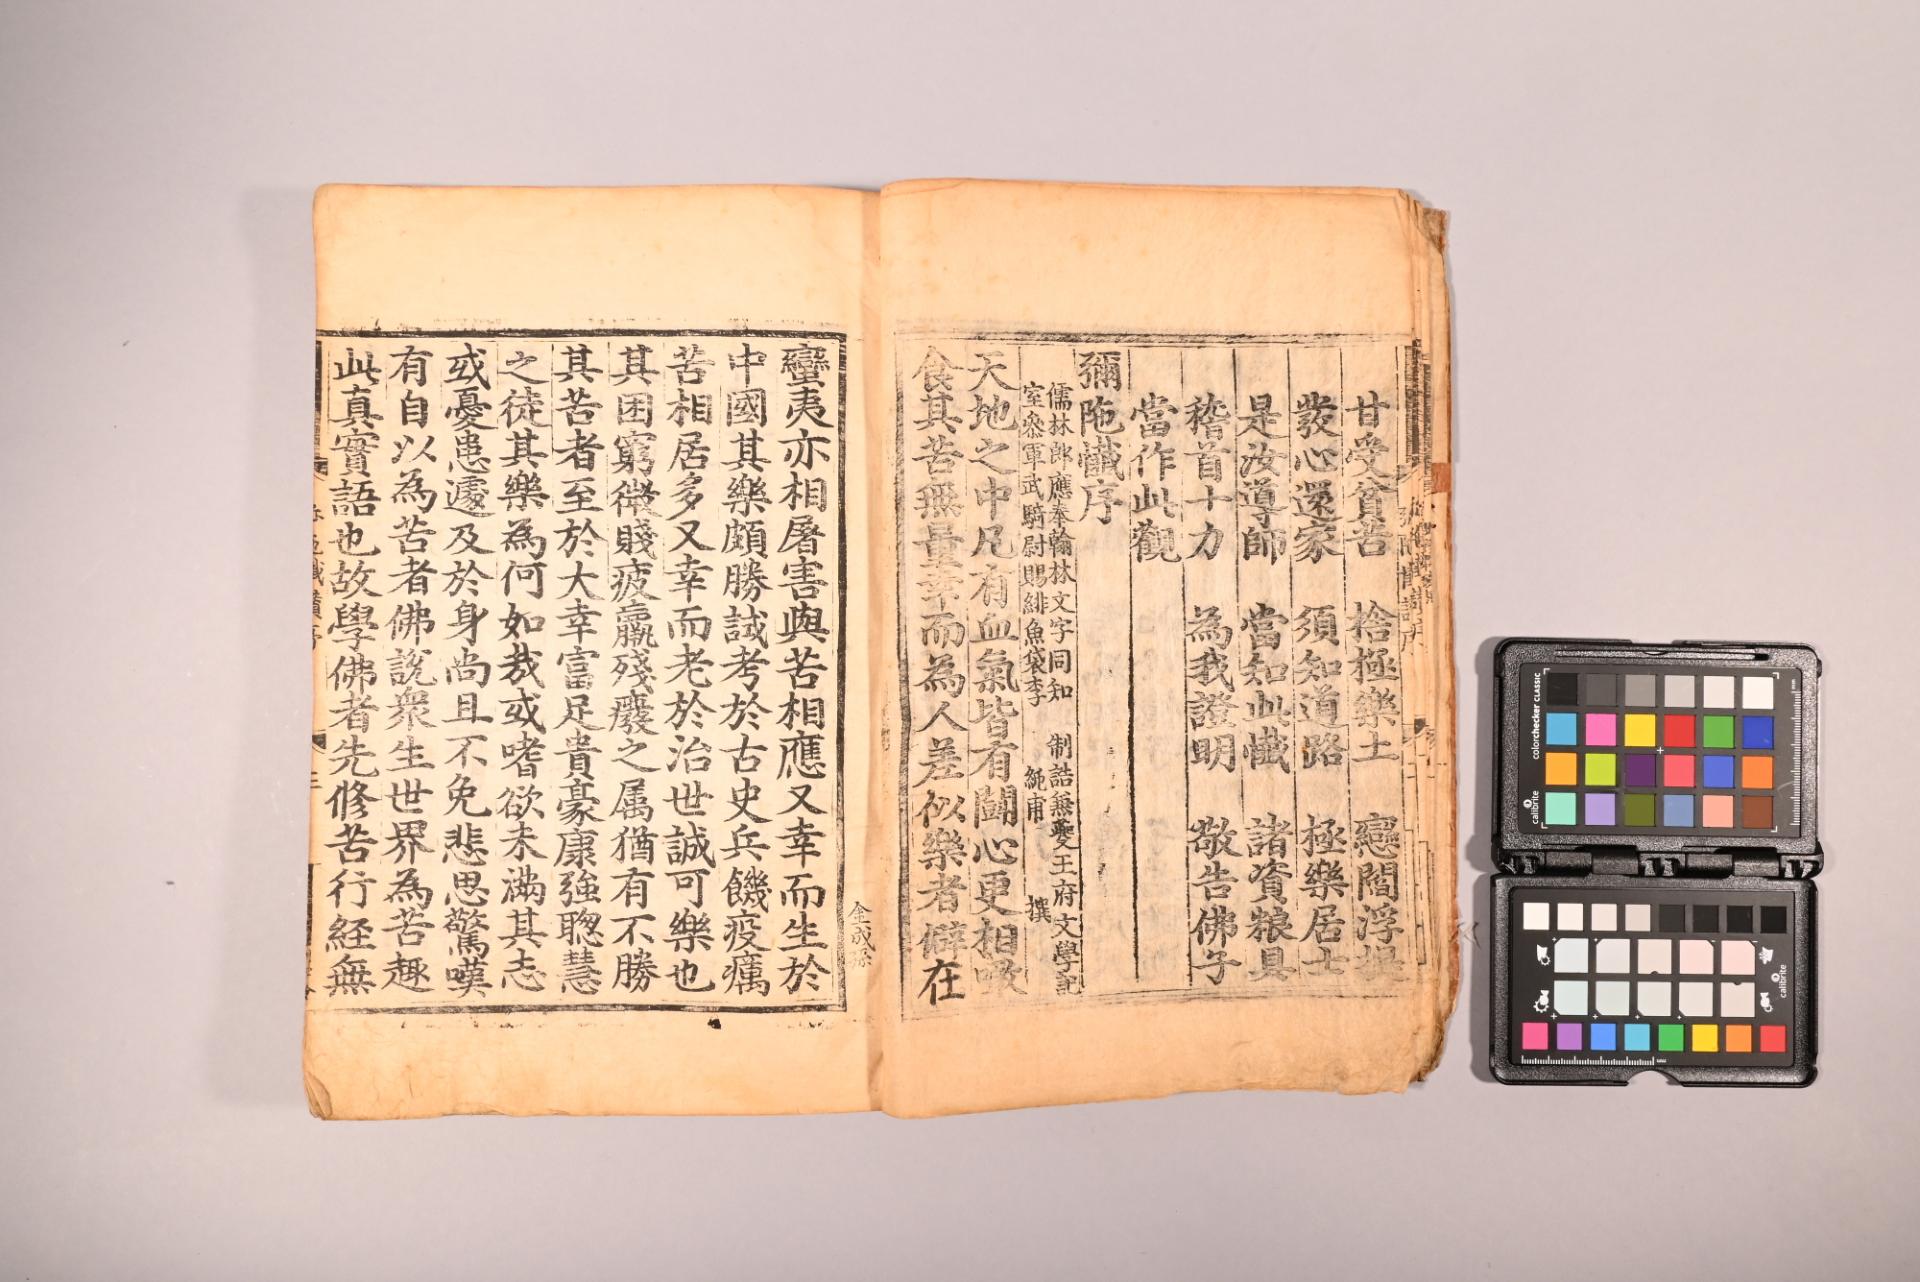 甘受貧苦 捨極樂土 戀閻浮提
發心還家 須知道路 極樂居士
是汝導師 當知此懺 諸資粮具
稽首十力 為我證明 敬告佛子
當作此觀
彌陁懺序
儒林郎應奉翰林文字同知 制誥兼夔王府文學記
室叅軍武騎尉賜緋魚袋李 純甫 撰
天地之中凡有血氣皆有鬪心更相噉
食其苦無量幸而為人差似樂者僻在
蠻夷亦相屠害與苦相應又幸而生於
中國其樂頗勝試考於古史兵饑疫癘
苦相居多又幸而老於治世誠可樂也
其困窮微賤疲羸殘癈之属猶有不勝
其苦者至於大幸富足貴豪康強聦慧
之徒其樂為何如㢤或嗜欲未滿其志
或憂患遽及於身尚且不免悲思驚嘆
有自以為苦者佛說衆生世界為苦趣
此真實語也故學佛者先修苦行経無
金成孫
calibrite colorchecker CLASSIC
calibrite